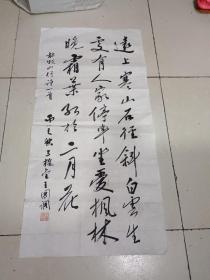 遠上寒山石徑斜白雲生
處有人家停車坐愛楓林
晚霜葉紅於二月花
杜牧山行诗一首